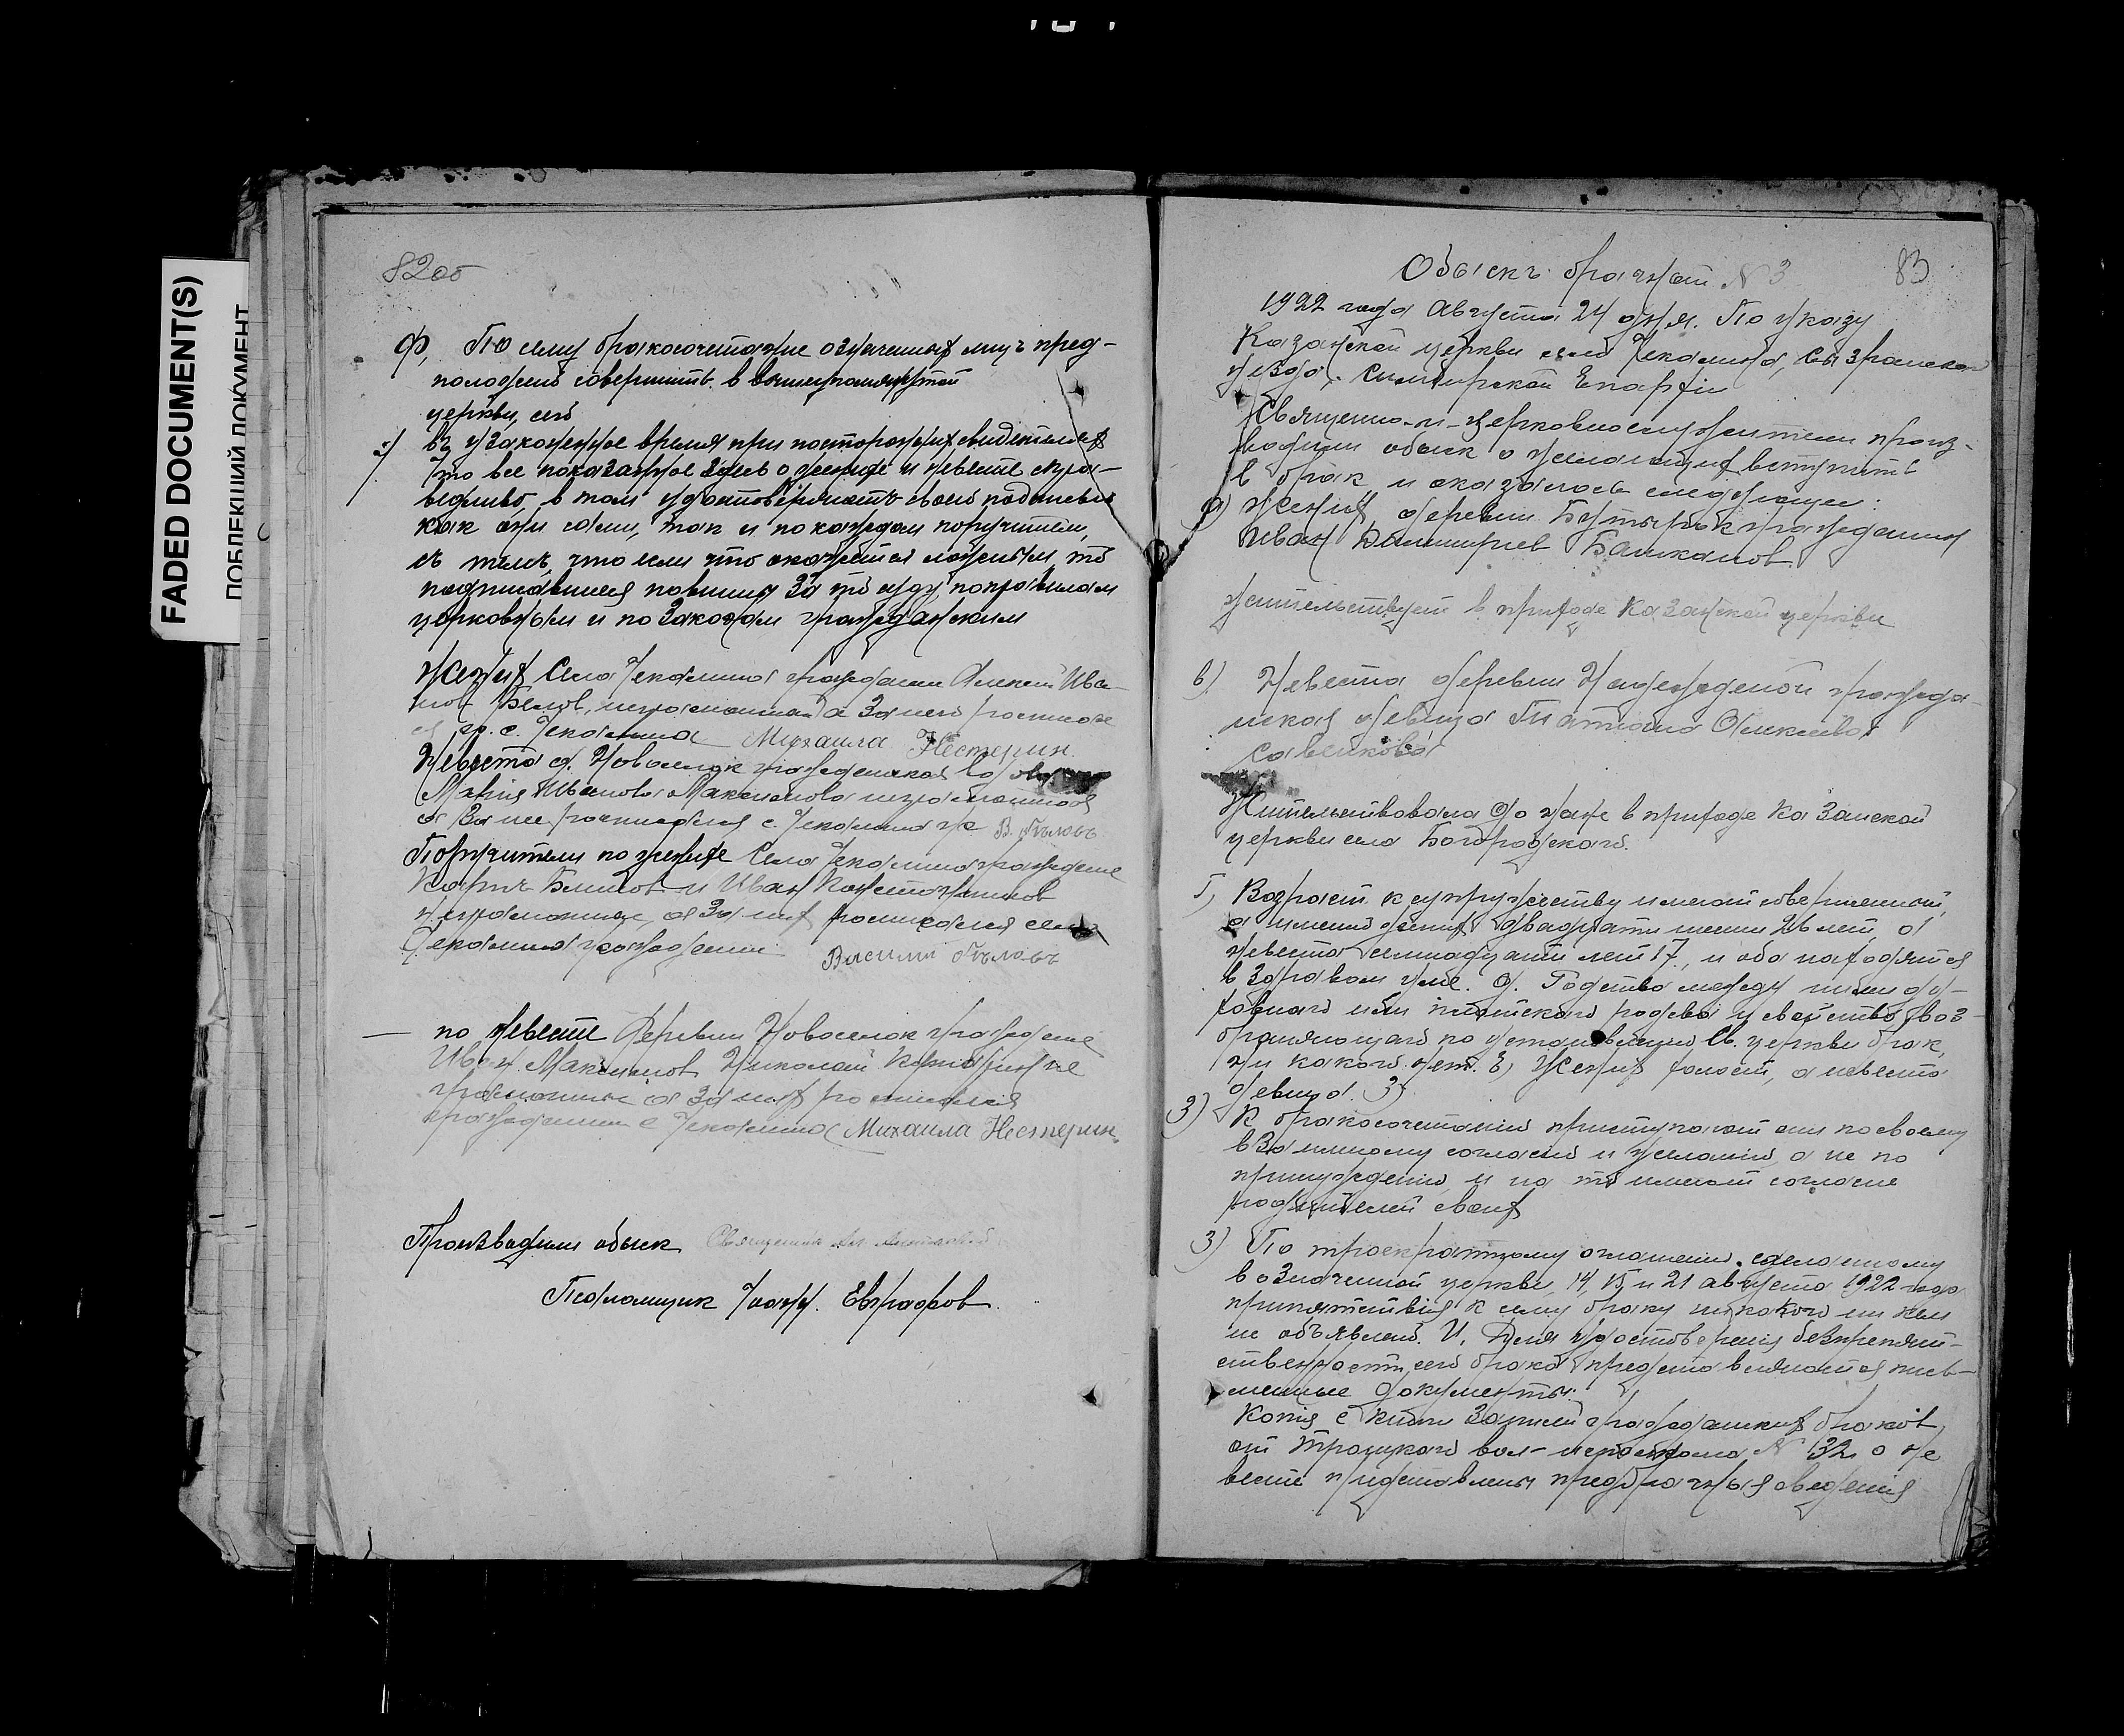 FADED DOCUMENT(S)
ПОБЛЕКШИЙ ДОКУМЕНТ
82об
Ф, По сему бракосочетание означенных лицъ пред-
положено совершить в вышеупомянутой
церкви, въ
въ узаконенное время при посторонних свидетелях
Что все показанное здесь о женихе и невесте спра-
ведливо, в том удостоверяютъ своею подписью
как они сами, так и по каждом поручители,
съ темъ, что если что окажется ложным, то
подписавшиеся повинны за то суду по правилам
церковным и по законам гражданским
Жених Села Чекалина гражданин Алексей Ива-
нов Белов, неграмотный а за него росписался
гр. с. Чекалина Михаила Нестерин
Невеста д. Новоселок гражданская вдова
Мария Иванова Максимова неграмотная
а за нее росписался с. Чекалина гр. В. Бѣловъ
Поручители по женихе Села Чекалина граждане
Белов и Иван Константинов
неграмотные, а за них росписался села
Чекалина гражданин Василий Бѣловъ
по невесте Деревни Новоселок граждане
Иван Максимов Николай не
грамотные а за них росписался
гражданин с Чекалина Михаила Нестерин
Производили обыск Священник
Псаломщик Иоанн. Евграфов.
83
Обыскъ брачный N 3
1922 года Августа 24 дня. По указу
Казанской церкви села Чекалина, Сызранского
уезда, Симбирской Епархии
Священно-и-церковнослужители произ-
водили обыск о желающих вступить
в брак и оказалось следующее:
а) Жених деревни Бутырък гражданин
Иван Димитриев Башкалов
жительствует в приходе Казанской церкви
в) Невеста деревни Надеждиной гражда-
нская девица Татиана Алексеева
Савенкова
Жительствовала до ныне в приходе Казанской
церкви села Богородского.
Г, Возраст к супружеству имеют совершенный,
а именно жених двадцати шести 26 лет, а
невеста семнадцати лет 17, и оба находятся
в здравом уме. д. Родства между ними ду-
ховнаго или плотскаго родства и свойства, воз-
браняющаго по установлению Св. церкви брак,
ни какого нет. Е) Жених холост, а невеста
девица. З)
З) К бракосочетанию приступают они по своему
взаимному согласию и желанию, а не по
принуждению, и на то имеют согласие
родителей своих
З) По троекратному оглашению, сделанному
в означенной церкви, 14, 15 и 21 августа 1922 года
препятствия к сему браку никакого ни кем
не объявлено. И, Для удостоверения безпрепят-
ственности сего брака представляются пись-
менные документы:
Копия с книги записей гражданских браков
от Троицкаго вол-исполкома N 32. о не
весте представлены предбрачныя сведения